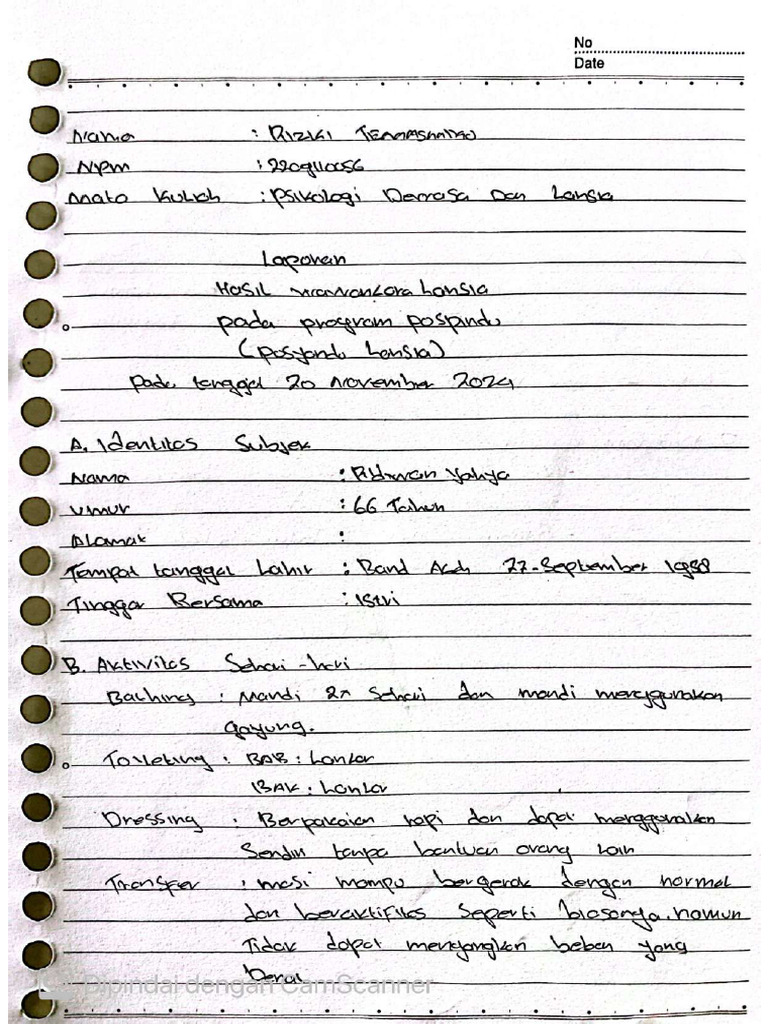 No
Date
Nama : Rizki
NPM : 220910056
Mata Kuliah : Psikologi Dewasa Dan Lansia
Laporan
Hasil wawancara Lansia
pada program pospindu
(posyandu Lansia)
pada tanggal 20 November 2024
A. Identitas Subjek
Nama : Ridwan Yahya
Umur : 66 Tahun
Alamat :
Tempat tanggal Lahir : Band Aceh 27-September 1958
Tinggal Bersama : Istri
B. Aktivitas Sehari-hari
Bathing : Mandi 2x Sehari dan mandi menggunakan
gayung.
Toileting : BAB : Lancar
BAK : Lancar
Dressing : Berpakaian rapi dan dapat menggunakan
Sendiri tanpa bantuan orang lain
Transfer : masi mampu bergerak dengan normal
dan beraktifitas seperti biasanya. namun
Tidak dapat mengangkan beban yang
Berat
Dipindai dengan CamScanner